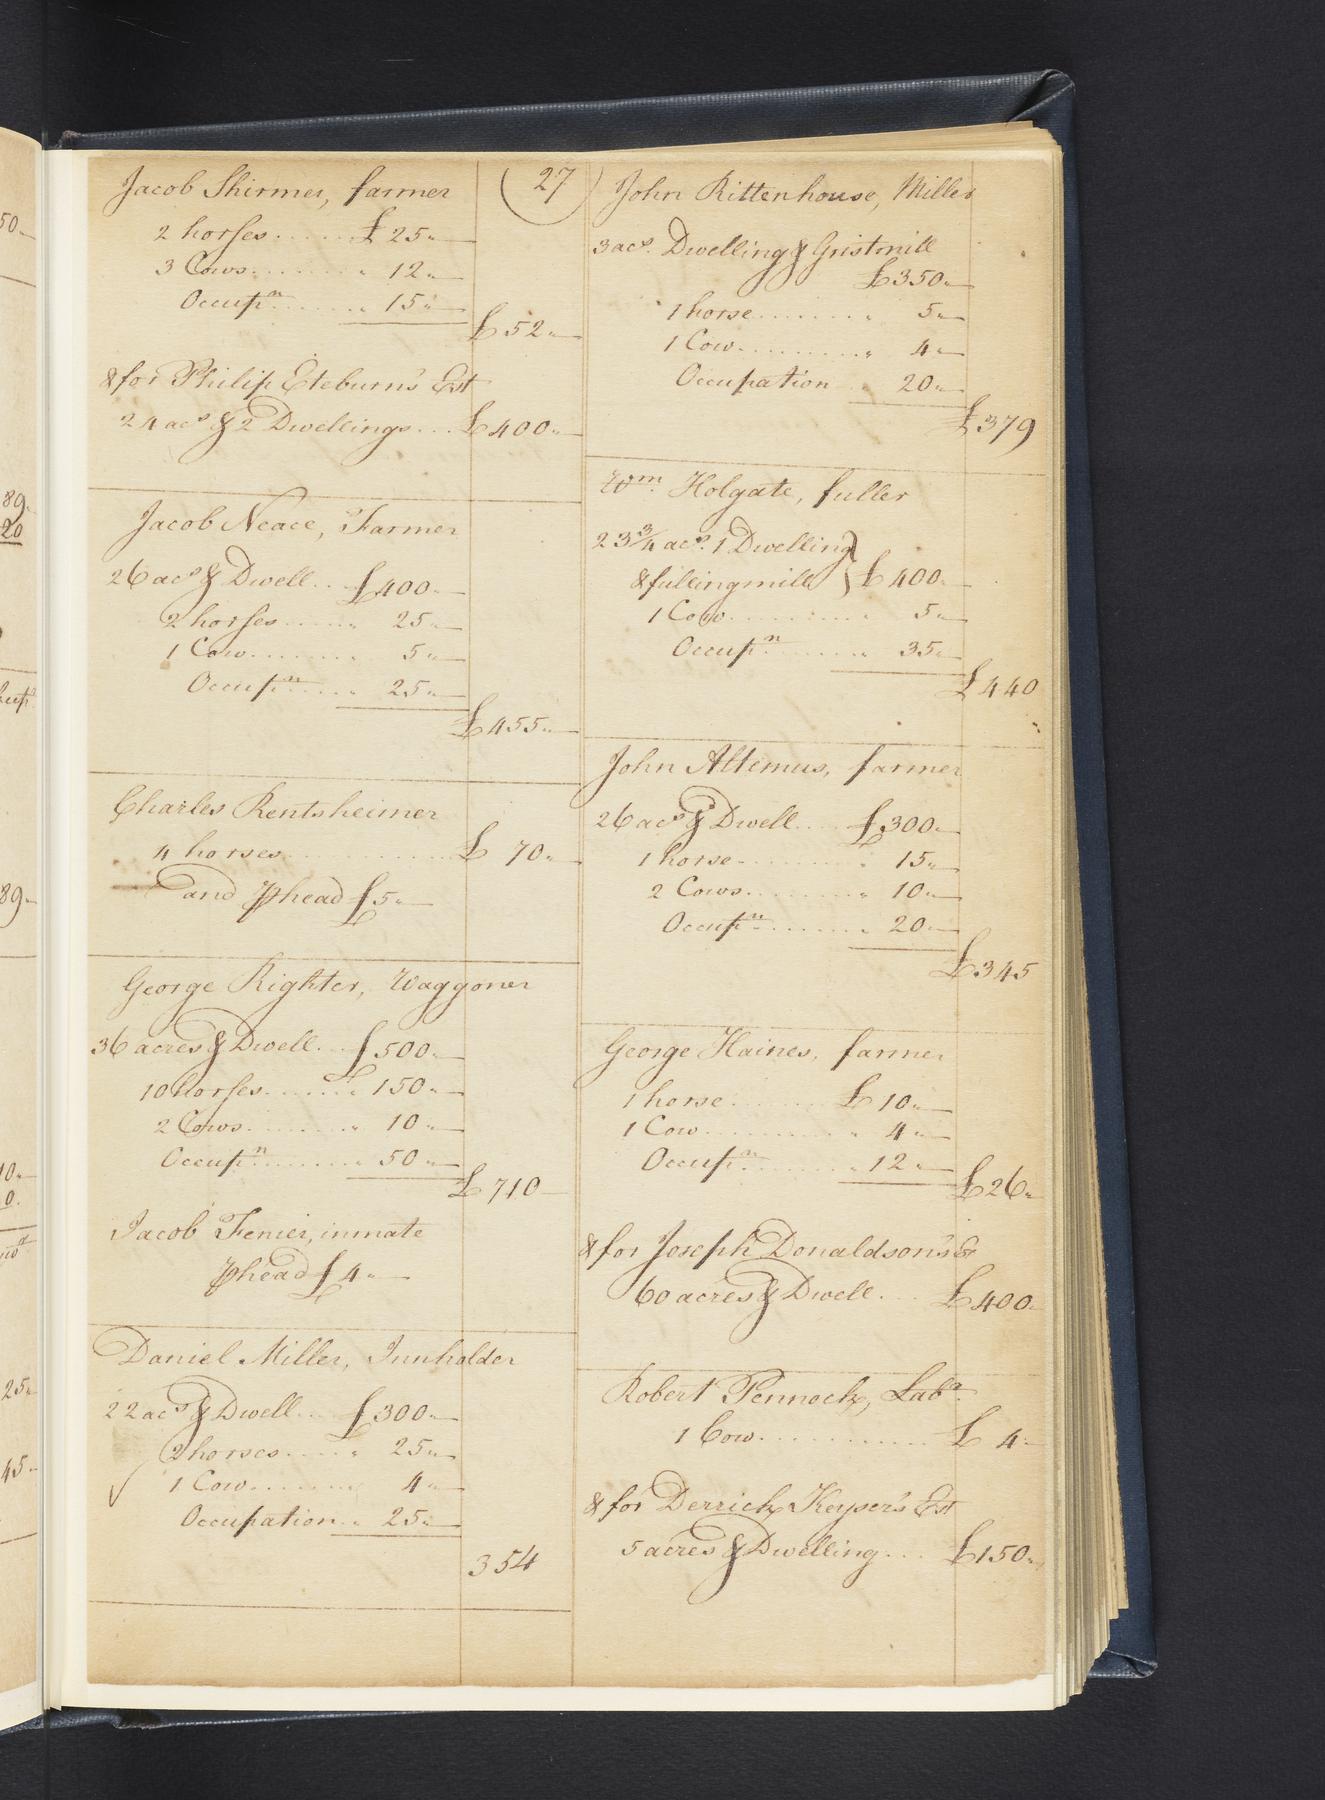 27
Jacob Shirmer, farmer
2 horses ...... £ 25"
3 Cows ........ " 12"
Occupn ...... " 15"
£ 52"
& for Philip Eteburn's Est
24 acs & 2 Dwellings ... £400"
Jacob Neace, Farmer
26 acs & Dwell .. £400"
2 horses ...... " 25"
1 Cow ........ " 5"
Occupn ..... " 25"
£455"
Charles Rentsheimer
4 horses ............ £ 70"
and P head £5"
George Righter, Waggoner
36 acres & Dwell .. £500"
10 horses ...... " 150"
2 Cows ........ " 10"
Occupn ....... " 50"
£ 710
Jacob Fenier, inmate
P head £4"
Daniel Miller, Innholder
22 acs & Dwell ... £300"
2 horses ..... " 25"
1 Cow ........ " 4"
Occupation .. " 25"
354
John Rittenhouse, Miller
3 acs. Dwelling & Gristmill
£350"
1 horse ........ " 5"
1 Cow ......... " 4"
Occupation .. " 20"
£379
Wm. Holgate, fuller
23 3/4 acs. 1 Dwelling
& fullingmill } £400"
1 Cow .......... " 5"
Occupn ........ " 35"
£440
John Altemus, farmer
26 acs & Dwell .... £300"
1 horse ......... " 15"
2 Cows ......... " 10"
Occupn ........ " 20"
£345
George Haines, farmer
1 horse ........ £ 10"
1 Cow .......... " 4"
Occupn ........ " 12"
£26"
& for Joseph Donaldson's Es
60 acres & Dwell ... £400"
Robert Pennock, Labr.
1 Cow ............ £ 4"
& for Derrick Keyser's Est
5 acres & Dwelling ... £150"